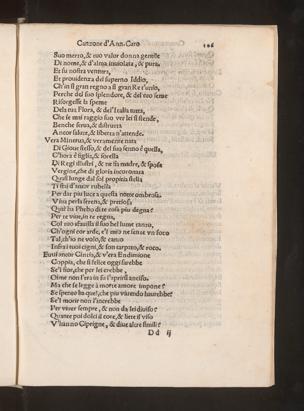 Canzone d'Ann. Caro 106
Suo merto, & tuo valor donna gentile
Di nome, & d'alma inuiolata, & pura.
Et fu nostra ventura,
Et prouidenza del superno Iddio,
Ch'in sì gran regno a sì gran Re t'unio,
Perche del suo splendore, & del tuo seme
Risorgesse la speme
Dela tua Flora, & de l'Italia tutta,
Che se mai raggio suo ver lei si stende,
Benche serua, & distrutta
Ancor salute, & libertà n'attende.
Vera Minerua, & veramente nata
Di Gioue stesso, & del suo senno è quella,
C'hora è figlia, & sorella
Di Regi illustri, & ne fia madre, & sposa
Vergine, che di gloria incoronata
Quasi lunge dal Sol propitia stella
Ti stai d'amor rubella
Per dar piu luce a questa notte ombrosa.
Viua perla serena, & pretiosa
Qual ha Phebo di te cosa piu degna?
Per te viue, in te regna,
Col tuo sfauilla il suo bel lume tanto,
Ch'ogni cor arde, e'l mio ne sente vn foco
Tal, ch'io ne volo, & canto
Infra i tuoi cigni, & son tarpato, & roco.
Euui ancor Cintia, & v'era Endimione
Coppia, che sì felice oggi sarebbe
Se'l fior, che per lei crebbe,
Oime non l'era in su l'aprirsi anciso.
Ma che se legge à morte amore impone?
Se spento ha quel, che piu viuendo haurebbe?
Se'l morir non l'increbbe
Per viuer sempre, & non da lei diuiso?
Quante poi dolci il core, & liete il viso
V'hanno Ciprigne, & diue altre simili?
Dd ij